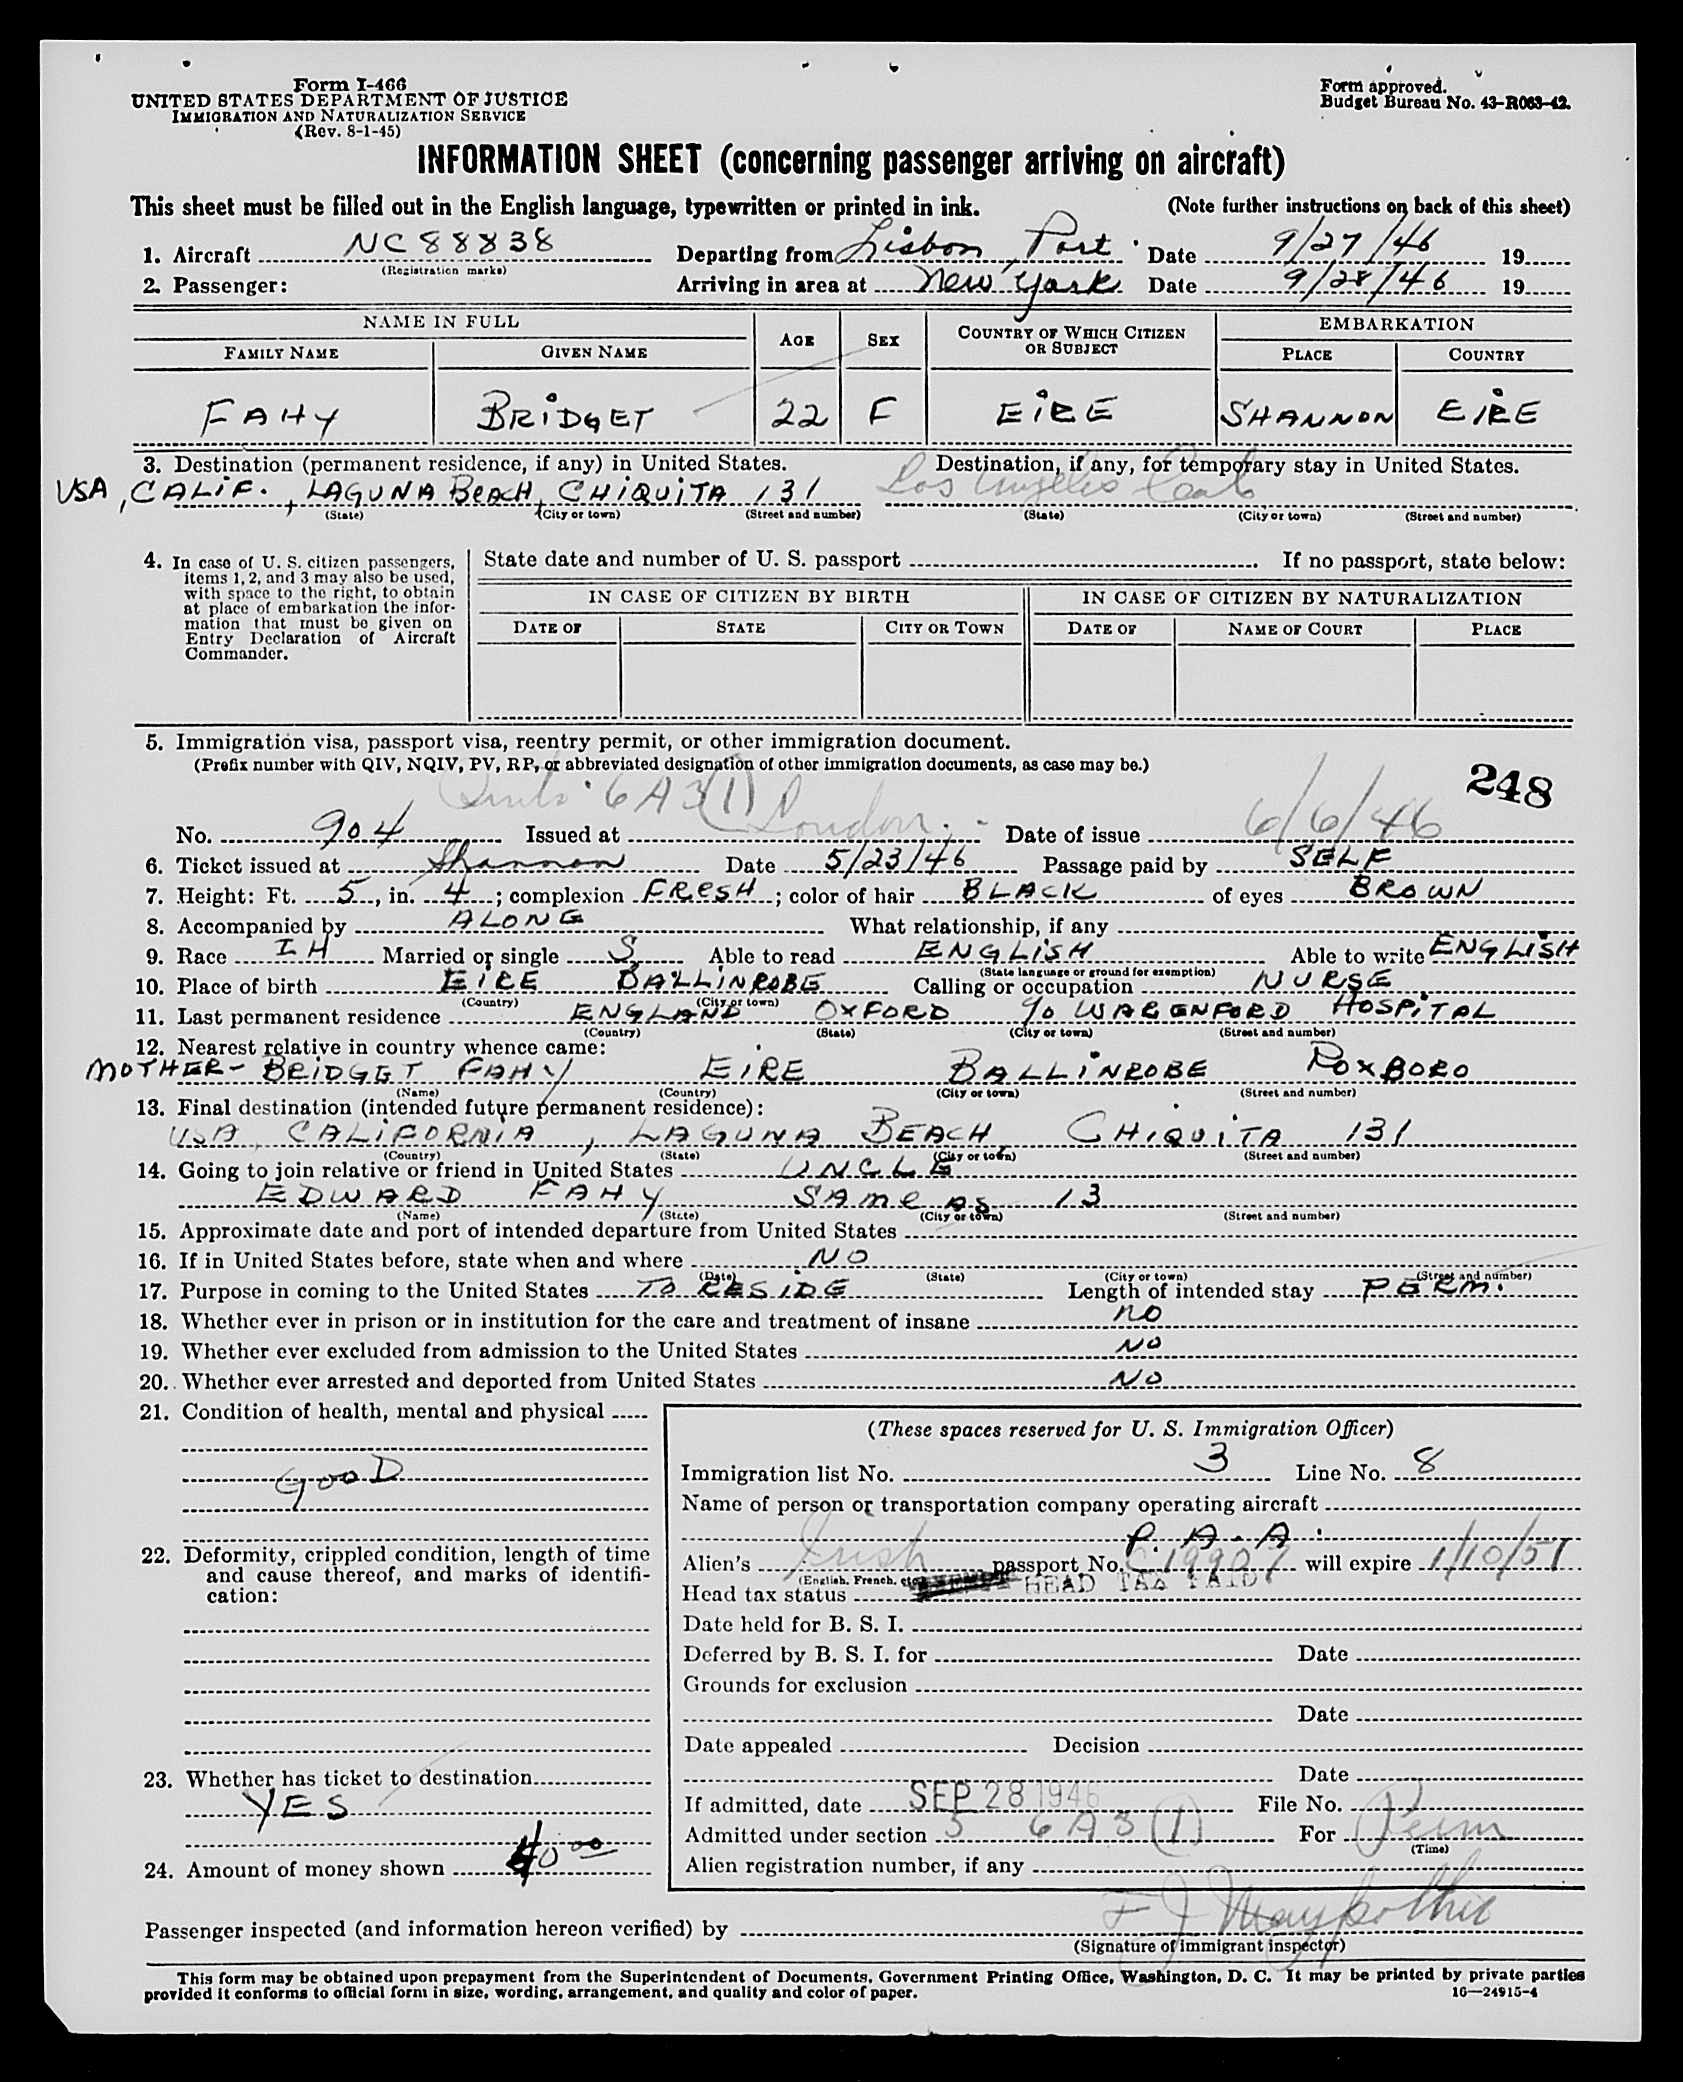 Form I-466
UNITED STATES DEPARTMENT OF JUSTICE
IMMIGRATION AND NATURALIZATION SERVICE
(Rev. 8-1-45)
Form approved.
Budget Bureau No. 43-R063-42.
INFORMATION SHEET (concerning passenger arriving on aircraft)
This sheet must be filled out in the English language, typewritten or printed in ink. (Note further instructions on back of this sheet)
1. Aircraft NC 88838 Departing from Lisbon, Port Date 9/27/46 19
(Registration marks)
2. Passenger: Arriving in area at New York Date 9/28/46 19
NAME IN FULL AGE SEX COUNTRY OF WHICH CITIZEN OR SUBJECT EMBARKATION
FAMILY NAME GIVEN NAME PLACE COUNTRY
FAHY BRIDGET 22 F EIRE SHANNON EIRE
3. Destination (permanent residence, if any) in United States. Destination, if any, for temporary stay in United States.
USA, CALIF., LAGUNA BEACH, CHIQUITA 131 Los Angeles
(State) (City or town) (Street and number) (State) (City or town) (Street and number)
4. In case of U. S. citizen passengers, items 1, 2, and 3 may also be used, with space to the right, to obtain at place of embarkation the information that must be given on Entry Declaration of Aircraft Commander.
State date and number of U. S. passport If no passport, state below:
IN CASE OF CITIZEN BY BIRTH IN CASE OF CITIZEN BY NATURALIZATION
DATE OF STATE CITY OR TOWN DATE OF NAME OF COURT PLACE
5. Immigration visa, passport visa, reentry permit, or other immigration document.
(Prefix number with QIV, NQIV, PV, RP, or abbreviated designation of other immigration documents, as case may be.)
248
6A3(1)
No. 904 Issued at London Date of issue 6/6/46
6. Ticket issued at Shannon Date 5/23/46 Passage paid by SELF
7. Height: Ft. 5, in. 4; complexion FRESH; color of hair BLACK of eyes BROWN
8. Accompanied by ALONG What relationship, if any
9. Race IH Married or single S Able to read ENGLISH Able to write ENGLISH
(State language or ground for exemption)
10. Place of birth EIRE BALLINROBE Calling or occupation NURSE
(Country) (City or town)
11. Last permanent residence ENGLAND OXFORD % WARENFORD HOSPITAL
(Country) (State) (City or town) (Street and number)
12. Nearest relative in country whence came:
MOTHER - BRIDGET FAHY EIRE BALLINROBE ROXBORO
(Name) (Country) (City or town) (Street and number)
13. Final destination (intended future permanent residence):
USA, CALIFORNIA, LAGUNA BEACH, CHIQUITA 131
(Country) (State) (City or town) (Street and number)
14. Going to join relative or friend in United States UNCLE
EDWARD FAHY SAME AS 13
(Name) (State) (City or town) (Street and number)
15. Approximate date and port of intended departure from United States
16. If in United States before, state when and where NO
(Date) (State) (City or town) (Street and number)
17. Purpose in coming to the United States TO RESIDE Length of intended stay PERM.
18. Whether ever in prison or in institution for the care and treatment of insane NO
19. Whether ever excluded from admission to the United States NO
20. Whether ever arrested and deported from United States NO
21. Condition of health, mental and physical
GOOD
22. Deformity, crippled condition, length of time and cause thereof, and marks of identification:
23. Whether has ticket to destination
YES
24. Amount of money shown 40 00
(These spaces reserved for U. S. Immigration Officer)
Immigration list No. 3 Line No. 8
Name of person or transportation company operating aircraft
P. A. A.
Alien's Irish passport No. C19907 will expire 1/10/51
(English, French, etc.)
Head tax status HEAD TAX PAID
Date held for B. S. I.
Deferred by B. S. I. for Date
Grounds for exclusion
Date
Date appealed Decision
Date
If admitted, date SEP 28 1946 File No.
Admitted under section 3 6A3(1) For Perm
(Time)
Alien registration number, if any
Passenger inspected (and information hereon verified) by F J
(Signature of immigrant inspector)
This form may be obtained upon prepayment from the Superintendent of Documents, Government Printing Office, Washington, D. C. It may be printed by private parties
provided it conforms to official form in size, wording, arrangement, and quality and color of paper. 16—24915-4